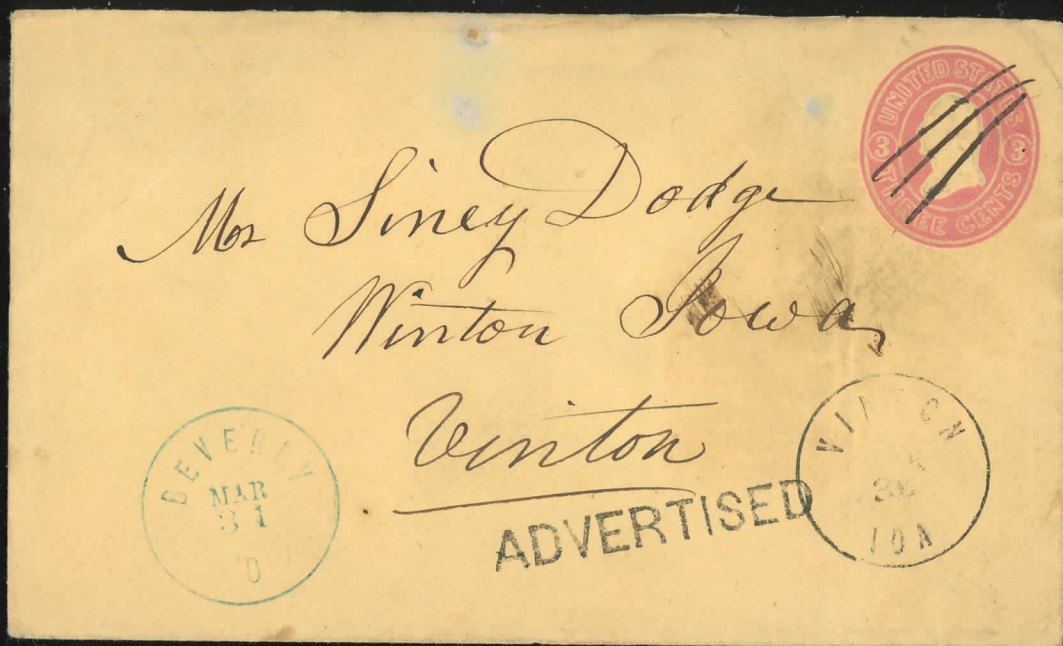 UNITED STATES
3 3
THREE CENTS
Mr Siney Dodge
Winton Iowa
Vinton
BEVERLY
MAR
31
O
ADVERTISED
VINTON
30
IOA